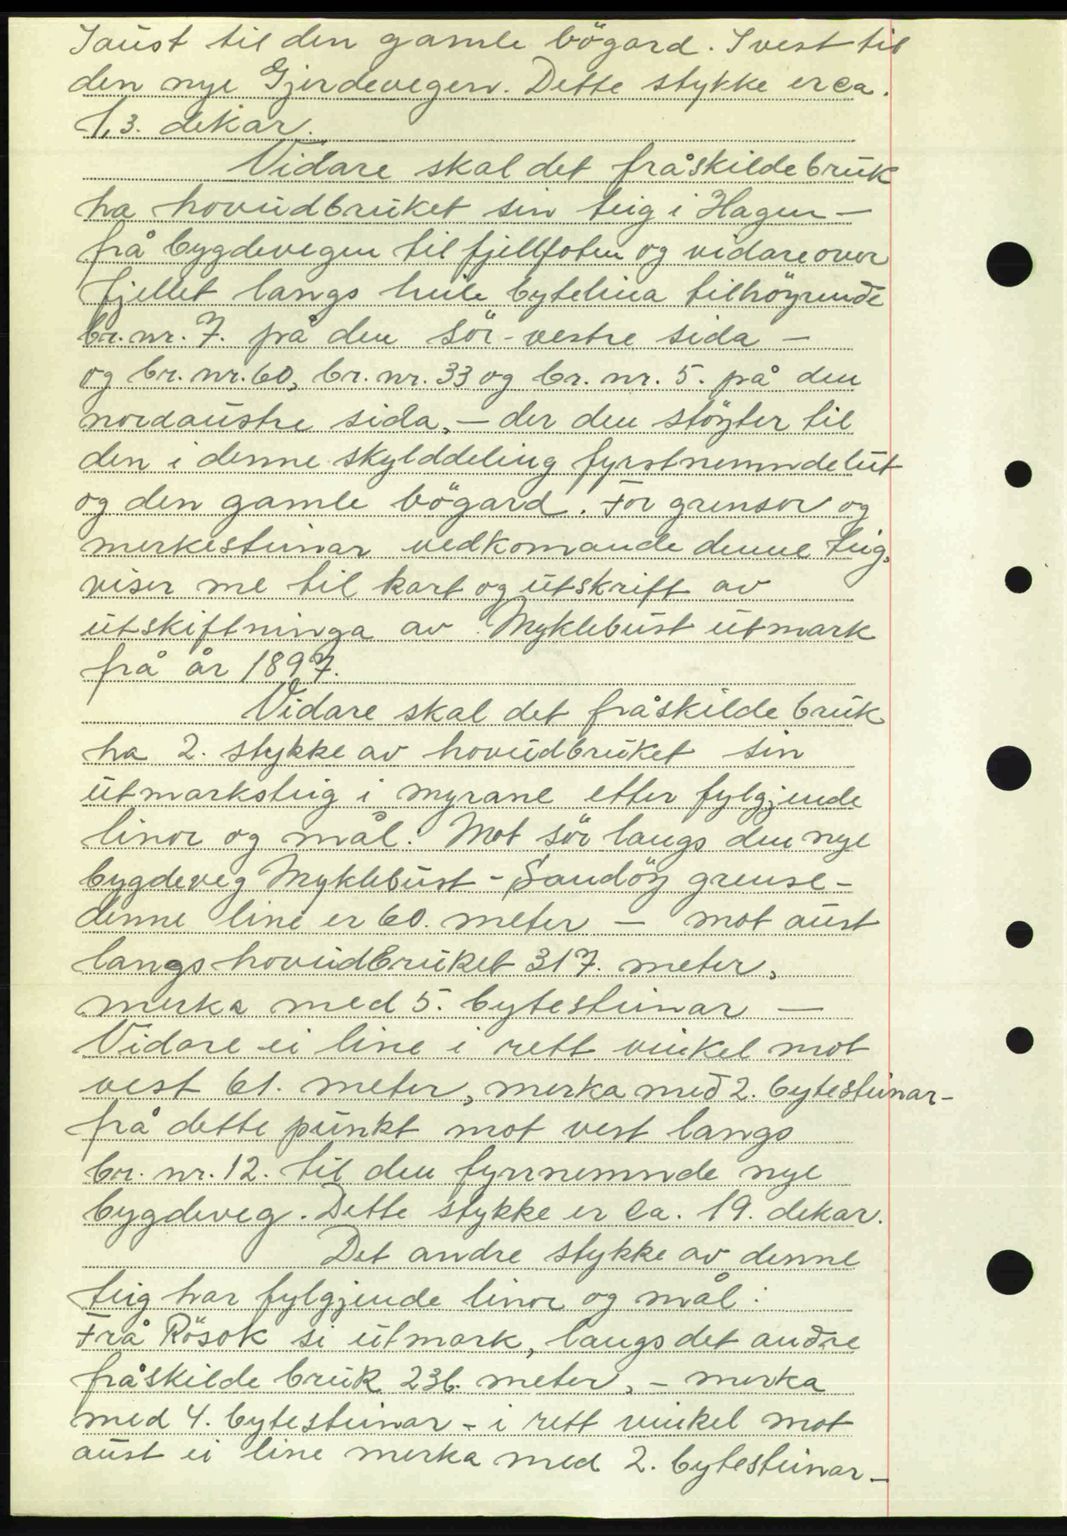 I aust til den gamle bögard. I vest til
den nye Gjerdevegen. Dette stykke er ca.
1,3. dekar.
Vidare skal det fråskilde bruk
ha hovudbruket sin teig i Hagen —
frå bygdevegen til fjellfoten og vidare over
fjellet langs heile bytelina tilhöyrende
br. nr. 7. på den sör-vestre sida —
og br. nr. 60, br. nr. 33 og br. nr. 5. på den
nordaustre sida, — der den stöyter til
den i denne skylddeling fyrstnemnde lut
og den gamle bögard. For grensor og
merkesteinar vedkomande denne teig,
viser me til kart og utskrift av
utskiftninga av Myklebust utmark
frå år 1897.
Vidare skal det fråskilde bruk
ha 2. stykke av hovudbruket sin
utmarksteig i myrane etter fylgjende
linor og mål: Mot sör langs den nye
bygdeveg Myklebust - Sandöy grense -
denne line er 60. meter — mot aust
langs hovudbruket 317. meter,
merka med 5. bytesteinar —
Vidare ei line i rett vinkel mot
vest 61. meter, merka med 2. bytesteinar -
frå dette punkt mot vest langs
br. nr. 12. til den fyrrnemnde nye
bygdeveg. Dette stykke er ca. 19. dekar.
Det andre stykke av denne
teig har fylgjende linor og mål:
Frå Rösok si utmark, langs det andre
fråskilde bruk 236. meter, - merka
med 4. bytesteinar - i rett vinkel mot
aust ei line merka med 2. bytesteinar -